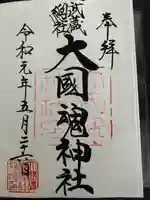 奉拝
武蔵
總社
大國魂神社
令和元年五月二十六日